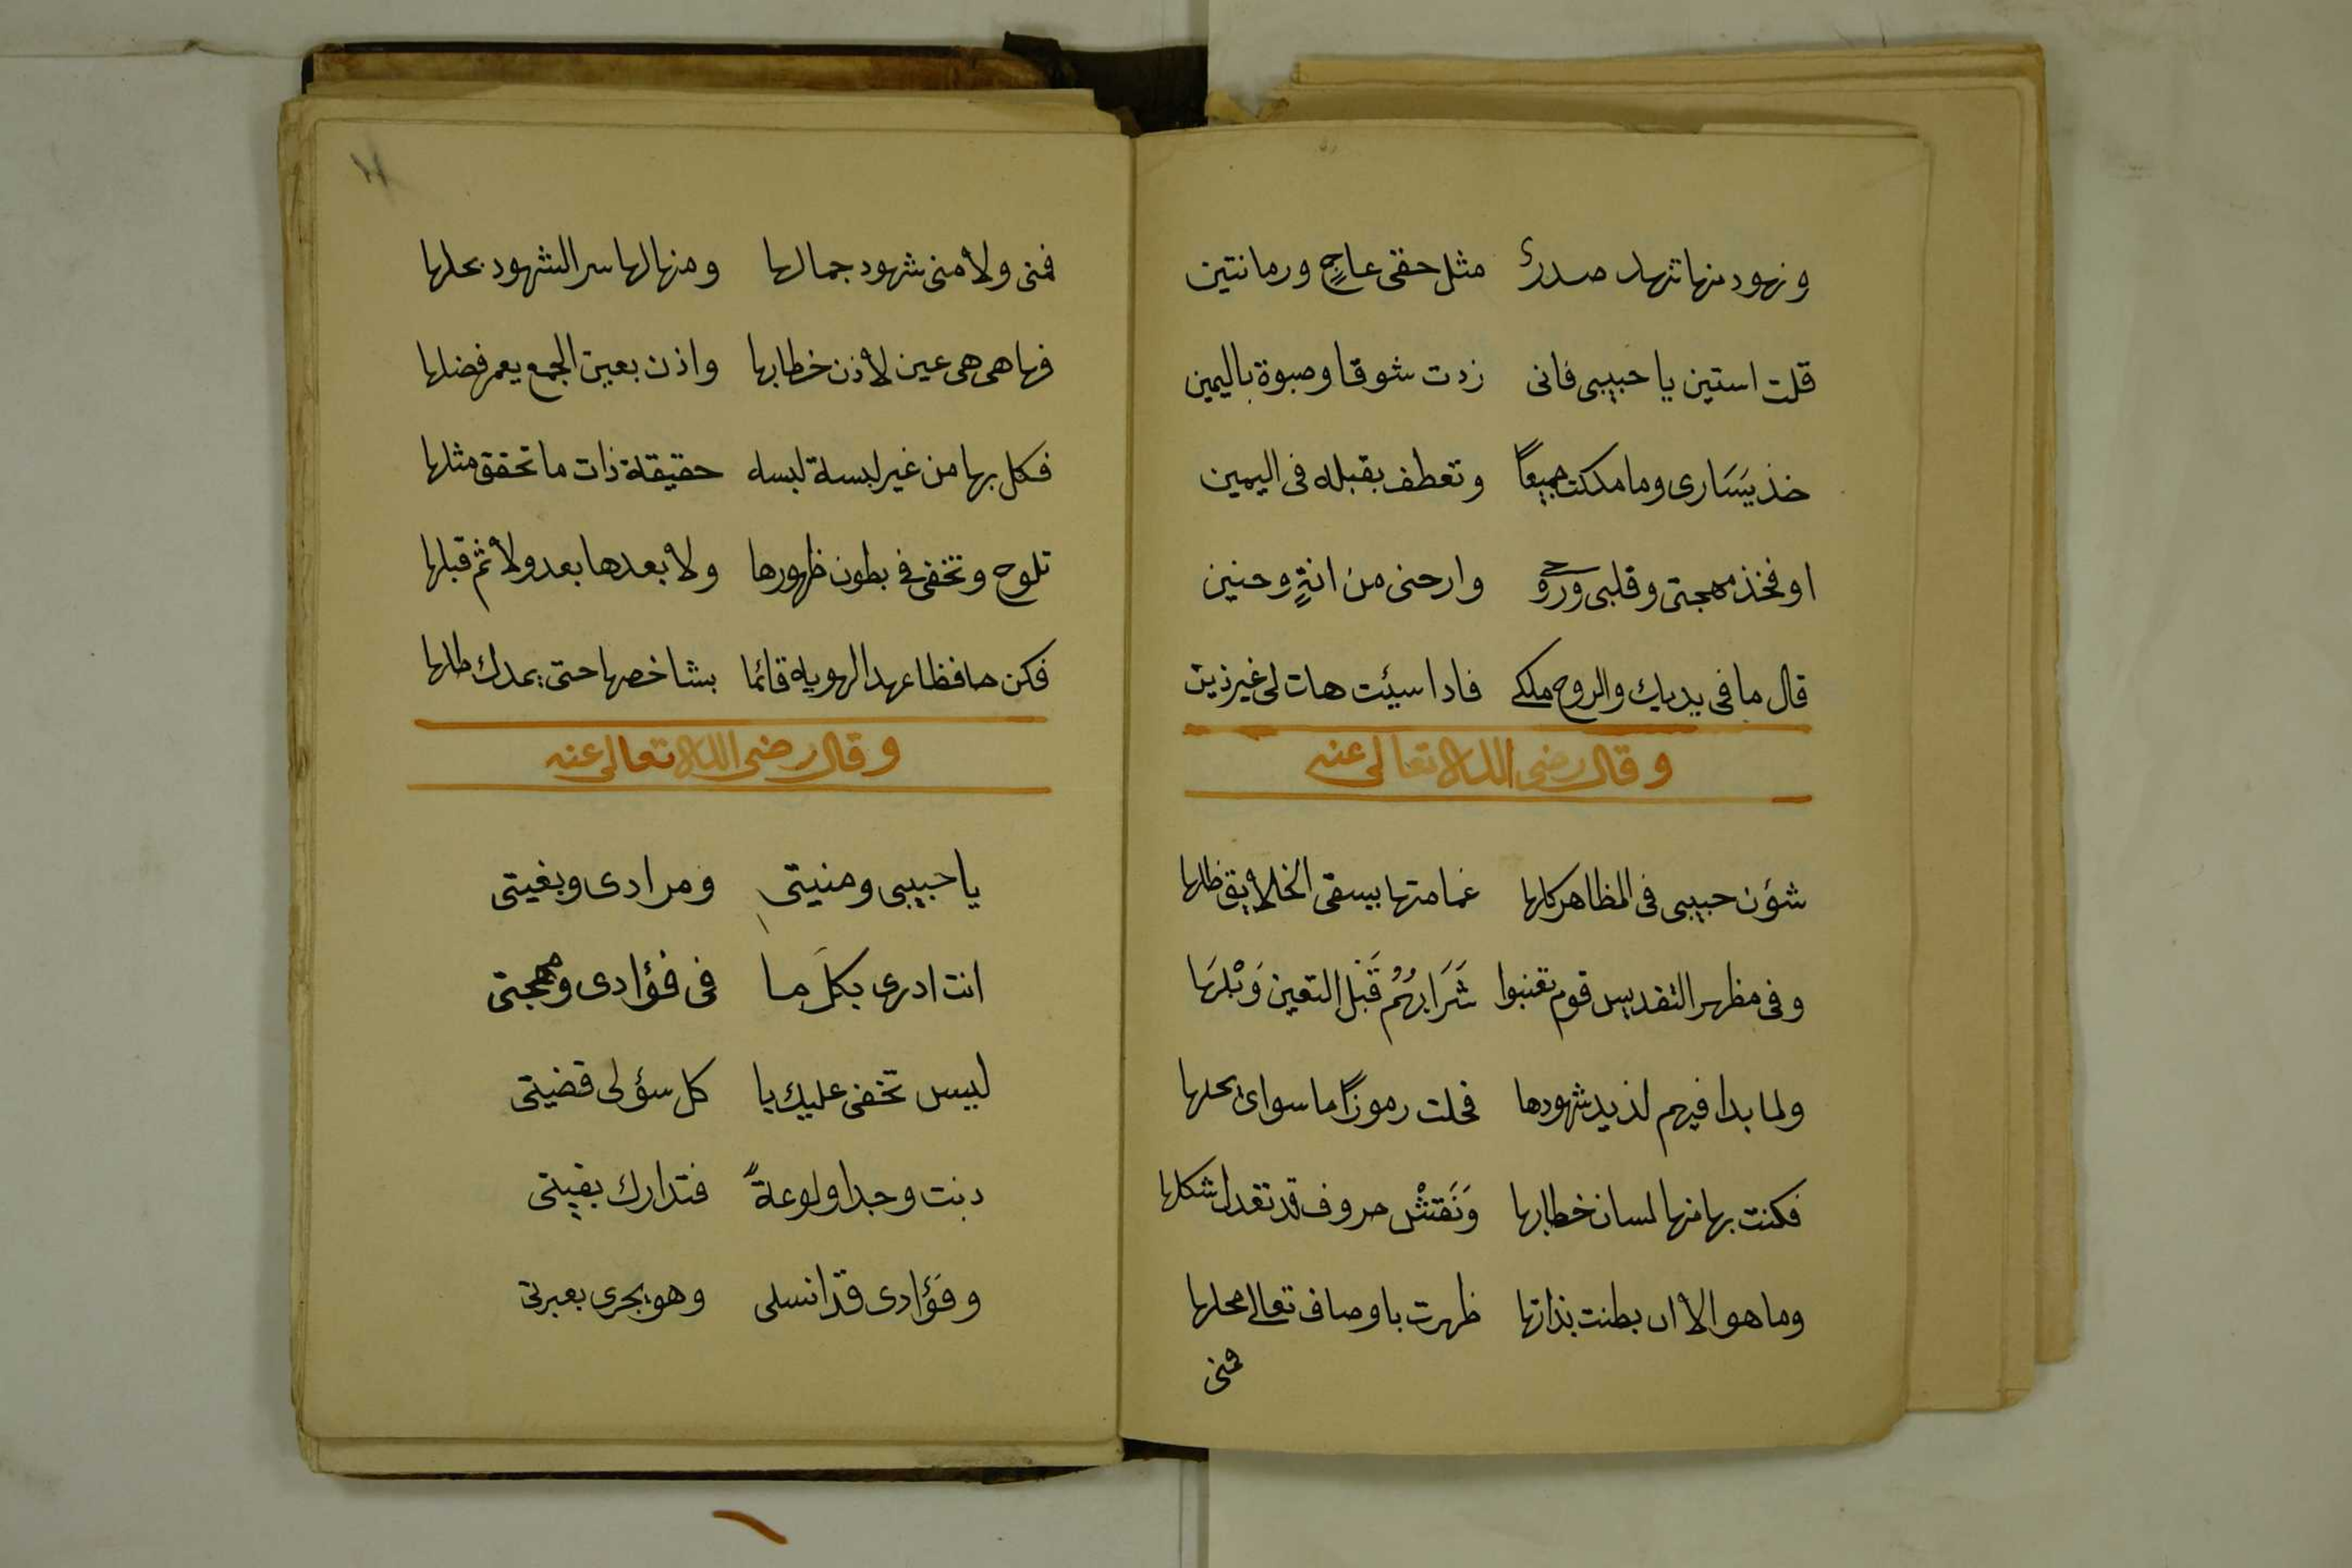 ونهود منها تنهد صدرى مثل حقى عاج ورمانتين
قلت استين يا حبيبى فانى زدت شوقا وصبوة باليمين
خذ يَسَارى وما مككت جميعاً وتعطف بقبله فى اليمين
او فخذ مهجتى وقلبى وروحى وارحنى من انةٍ وحنين
قال ما فى يديك والروح ملكى فاذا سيئت هات لى غير ذين
وقال رضى الله تعالى عنه
شؤن حبيبى فى المظاهر كلها غمامتها بيسقى الخلايق ظلها
وفى مظهر التقديس قوم شَرَابهُمْ قَبْل التعين وَبْلهَا
ولما بدا فيهم لذيد شهودها فحلت رموزاً ما سواى يحلها
فكنت بها منها لسان خطابها وَنَقْش حروف قد تعدل شكلها
وما هو الا ان بطنت بذاتها ظهرت باوصاف تعالى محلها
فمنى
فمنى ولا منى شهود جمالها ومنها لها سر الشهود يحلها
فها هى هى عين لاذن خطابها واذن بعين الجمع يعم فضلها
فكل بها من غير لبسة لبسه حقيقة ذات ما تحقق مثلها
تلوح وتخفى فى بطون ظهورها ولا بعدها بعد ولا ثم قبلها
فكن حافظا عهد الهويه قائما بشاخصها حتى يمدك طلها
وقال رضى الله تعالى عنه
يا حبيبى ومنيتى ومرادى وبغيتى
انت ادرى بكل ما فى فؤادى ومهجتى
ليس تخفى عليك يا كل سؤلى قضيتى
دبت وجدا ولوعةً فتدارك بقيتى
وفؤادى قد انسلى وهو يجرى بعبرتى